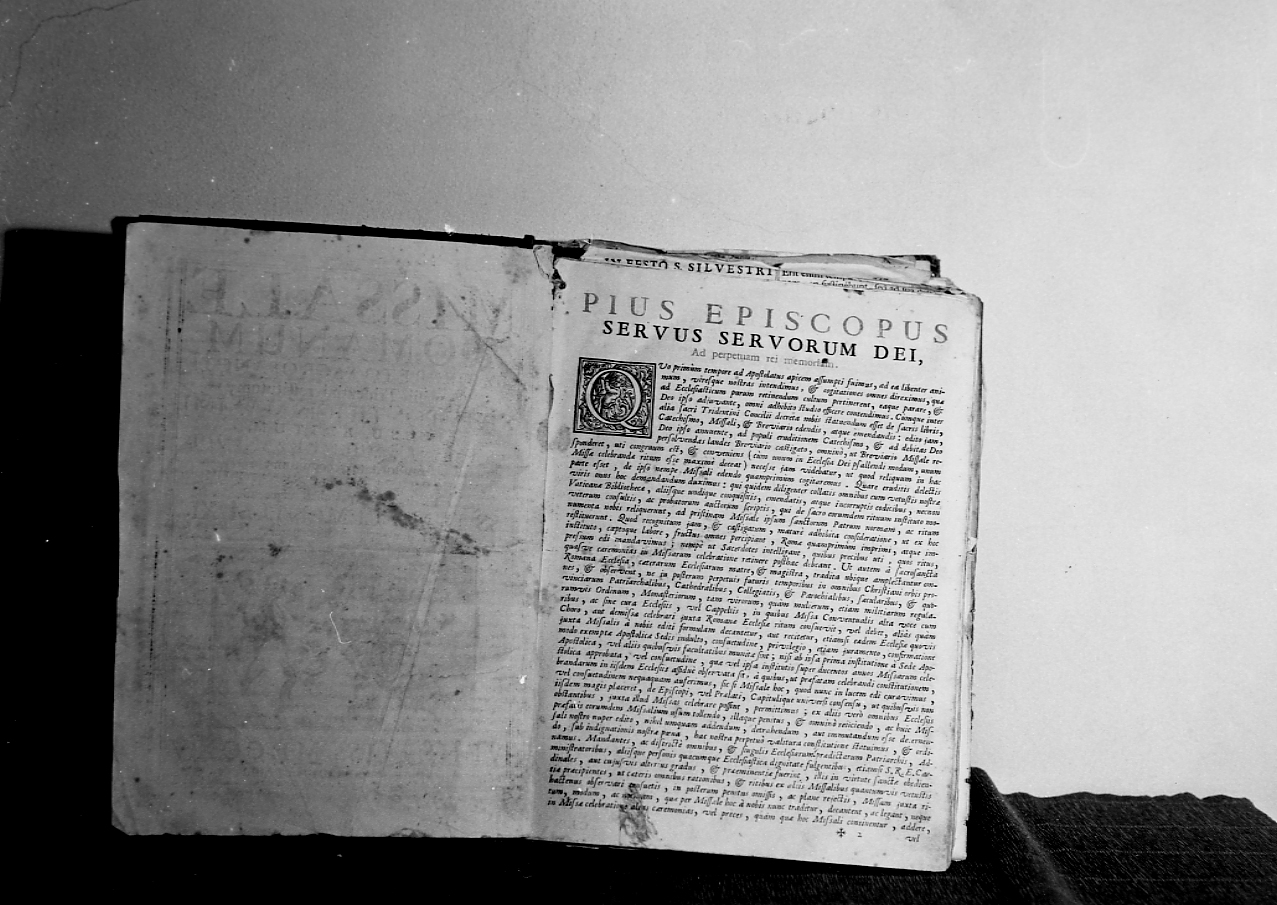 MISSALE
IN FESTO S. SILVESTRI
PIUS EPISCOPUS
SERVUS SERVORUM DEI,
Ad perpetuam rei memoriam.
QUo primum tempore ad Apostolatus apicem assumpti fuimus, ad ea libenter ani-
mum, viresque nostras intendimus, & cogitationes omnes direximus, quæ
ad Ecclesiasticum purum retinendum cultum pertinerent, eaque parare, &
Deo ipso adjuvante, omni adhibito studio efficere contendimus. Cumque inter
alia sacri Tridentini Concilii decreta nobis statuendum esset de sacris libris,
Catechismo, Missali, & Breviario edendis, atque emendandis: edito jam,
Deo ipso annuente, ad populi eruditionem Catechismo, & ad debitas Deo
persolvendas laudes Breviario castigato, omninò, ut Breviario Missale re-
sponderet, uti congruum est, & conveniens (cùm unum in Ecclesia Dei psallendi modum, unum
Missæ celebrandæ ritum esse maximè deceat) necesse jam videbatur, ut quod reliquum in hac
parte esset, de ipso nempe Missali edendo quamprimùm cogitaremus. Quare eruditis delectis
viris onus hoc demandandum duximus: qui quidem diligenter collatis omnibus cum vetustis nostræ
Vaticanæ Bibliothecæ, aliisque undique conquisitis, emendatis, atque incorruptis codicibus, necnon
veterum consultis, ac probatorum auctorum scriptis, qui de sacro eorumdem rituum instituto mo-
numenta nobis reliquerunt, ad pristinam Missale ipsum sanctorum Patrum normam, ac ritum
restituerunt. Quod recognitum jam, & castigatum, maturè adhibita consideratione, ut ex hoc
instituto, cæptoque labore, fructus omnes percipiant, Romæ quamprimum imprimi, atque im-
pressum edi mandavimus; nempè ut Sacerdotes intelligant, quibus precibus uti, quos ritus,
quasve cæremonias in Missarum celebratione retinere posthac debeant. Ut autem à sacrosancta
Romana Ecclesia, cæterarum Ecclesiarum matre, & magistra, tradita ubique amplectantur om-
nes, & observent, ne in posterum perpetuis futuris temporibus in omnibus Christiani orbis pro-
vinciarum Patriarchalibus, Cathedralibus, Collegiatis, & Parochialibus, sæcularibus, & quo-
rumvis Ordinum, Monasteriorum, tam virorum, quam mulierum, etiam militiarum regula-
ribus, ac sine cura Ecclesiis, vel Cappellis, in quibus Missa Conventualis alta voce cum
Choro, aut demissa celebrari juxta Romanæ Ecclesiæ ritum consuevit, vel debet, aliàs quàm
juxta Missalis à nobis editi formulam decantetur, aut recitetur, etiamsi eædem Ecclesiæ quovis
modo exemptæ Apostolicæ Sedis indulto, consuetudine, privilegio, etiam juramento, confirmatione
Apostolica, vel aliis quibusvis facultatibus munitæ sint; nisi ab ipsa prima institutione à Sede Apo-
stolica approbata, vel consuetudine, quæ vel ipsa institutio super ducentos annos Missarum cele-
brandarum in iisdem Ecclesiis assiduè observata sit, à quibus, ut præfatam celebrandi constitutionem,
vel consuetudinem nequaquam auferimus, sic si Missale hoc, quod nunc in lucem edi curavimus,
iisdem magis placeret, de Episcopi, vel Prælati, Capitulique universi consensu, ut quibusvis non
obstantibus, juxta illud Missas celebrare possint, permittimus; ex aliis verò omnibus Ecclesiis
præfatis eorumdem Missalium usum tollendo, illaque penitus, & omninò rejiciendo, ac huic Mis-
sali nostro nuper edito, nihil umquam addendum, detrahendum, aut immutandum esse decernen-
do, sub indignationis nostræ pœna, hac nostra perpetuò valitura constitutione statuimus, & ordi-
namus. Mandantes, ac districtè omnibus, & singulis Ecclesiarum prædictarum Patriarchis, Ad-
ministratoribus, aliisque personis quacumque Ecclesiastica dignitate fulgentibus, etiamsi S. R. E. Car-
dinales, aut cujusvis alterius gradus, & præeminentiæ fuerint, illis in virtute sanctæ obedien-
tiæ præcipientes, ut cæteris omnibus rationibus, & ritibus ex aliis Missalibus quantumvis vetustis
hactenus observari consuetis, in posterum penitus omissis, ac planè rejectis, Missam juxta ri-
tum, modum, ac normam, quæ per Missale hoc à nobis nunc traditur, decantent, ac legant, neque
in Missæ celebratione alias cæremonias, vel preces, quàm quæ hoc Missali continentur, addere,
✠ 2
vel